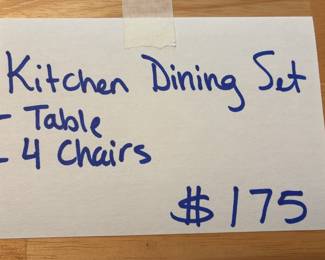 Kitchen Dining Set
- Table
- 4 Chairs
$175